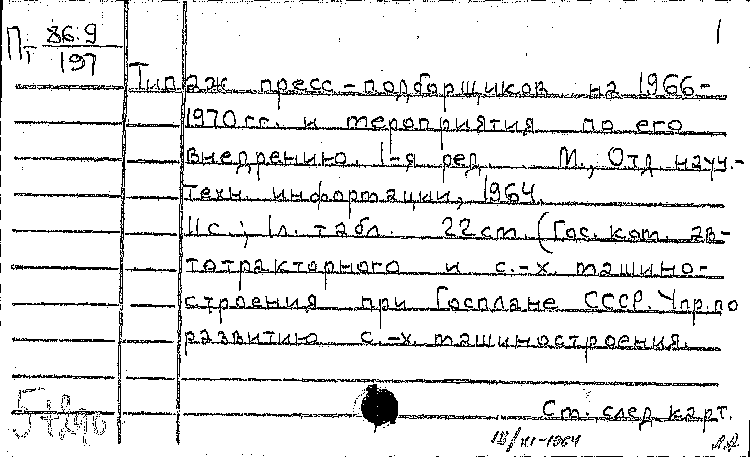 1
Пт 86.9
197
Типаж пресс-подборщиков на 1966-
1970 гг. и мероприятия по его
внедрению. 1-я ред. М., Отд. науч.-
техн. информации, 1964.
11 с.; 1 л. табл. 22 см. (Гос. ком. ав-
тотракторного и с.-х. машино-
строения при Госплане СССР. Упр. по
развитию с.-х. машиностроения.
См. след. карт.